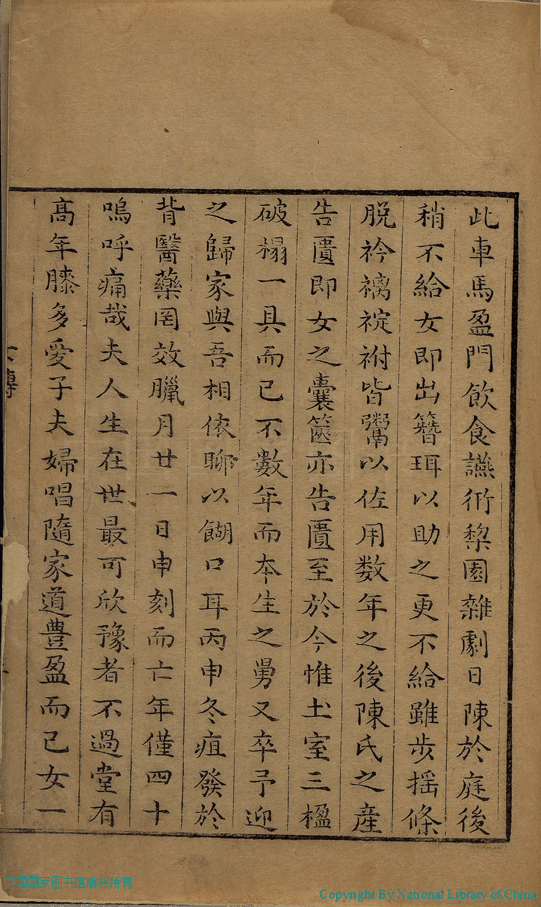 此車馬盈門飲食讌衎棃園雜劇日陳於庭後
稍不給女即出簪珥以助之更不給雖步揺條
脫衿褵裧祔皆鬻以佐用数年之後陳氏之產
告匱即女之囊篋亦告匱至於今惟土室三楹
破榻一具而已不數年而本生之舅又卒予迎
之歸家與吾相依聊以餬口耳丙申冬疽發於
背醫藥罔效臘月廿一日申刻而亡年僅四十
嗚呼痛哉夫人生在世最可欣豫者不過堂有
高年膝多愛子夫婦唱隨家道豊盈而已女一
傳
Copyright By National Library of China